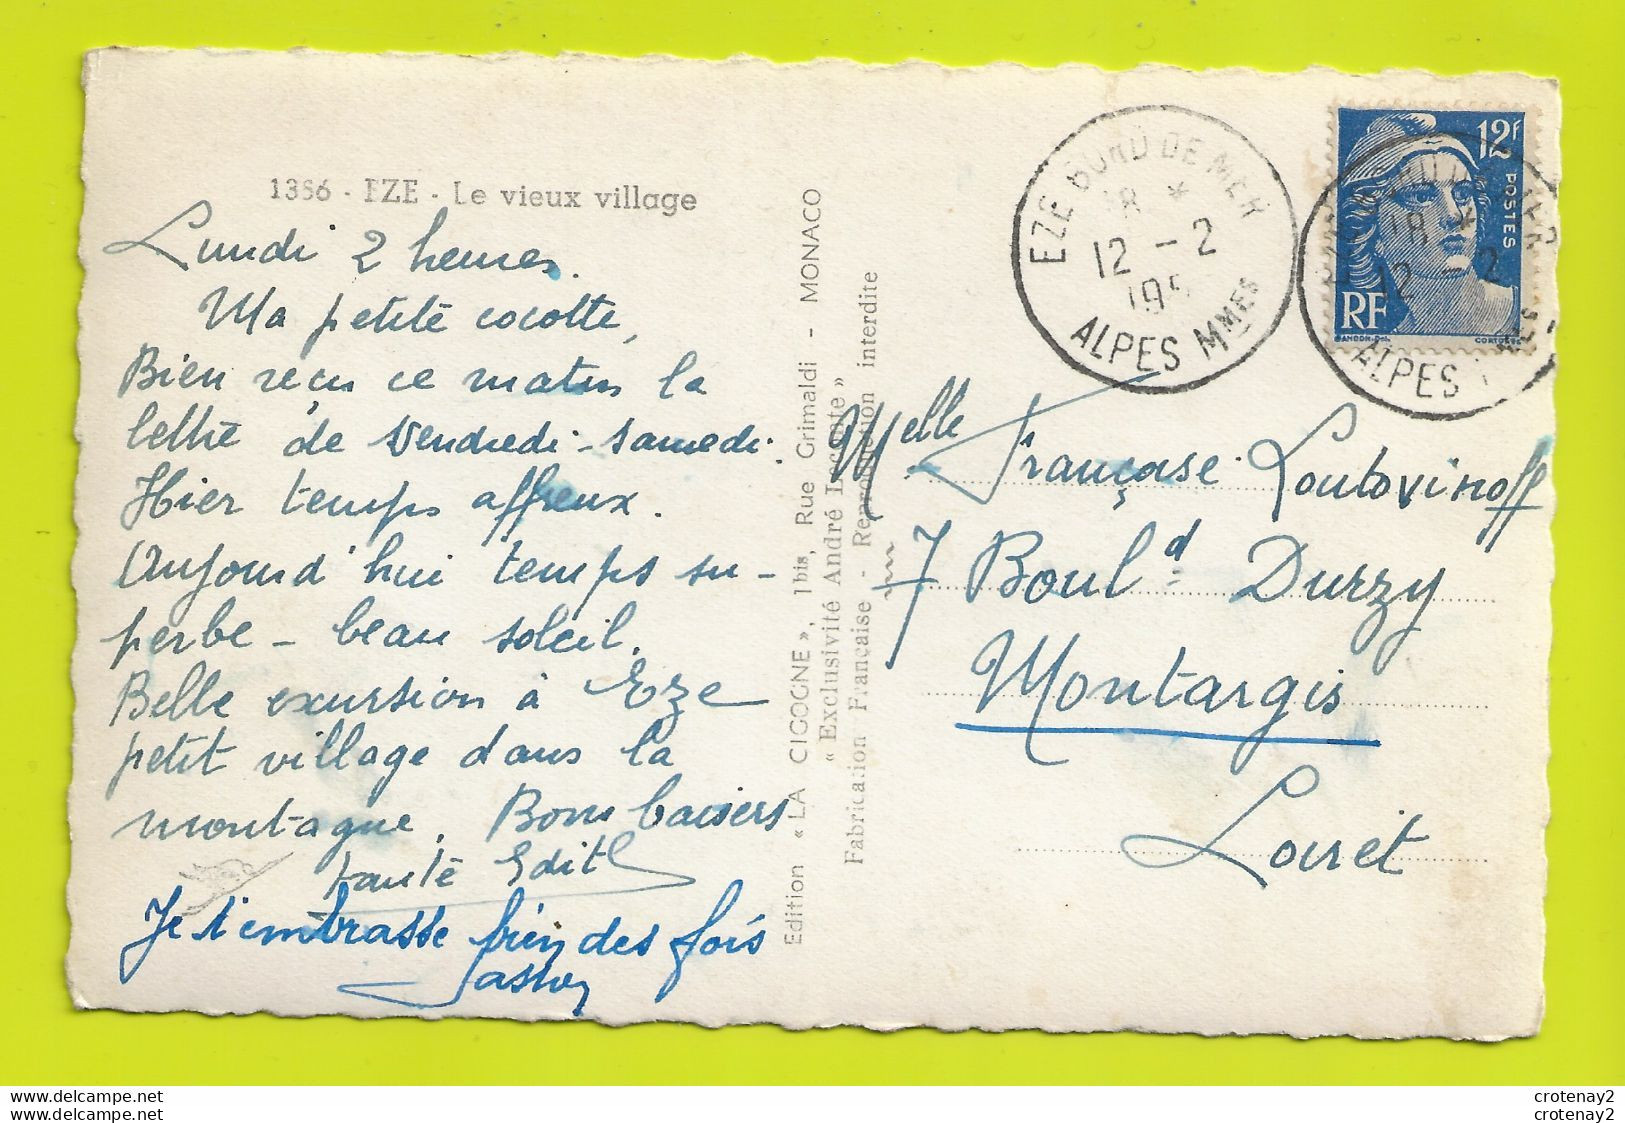 1386 - EZE - Le vieux village
Lundi 2 heures.
Ma petite cocotte,
Bien reçu ce matin la
lettre de Vendredi-Samedi.
Hier temps affreux.
Aujourd'hui temps su-
perbe - beau soleil.
Belle excursion à Eze
petit village dans la
montagne. Bons baisers
tante Edith
Je t'embrasse bien des fois
Edition « LA CIGOGNE », 1bis, Rue Grimaldi - MONACO
« Exclusivité André Leconte »
Fabrication Française - Reproduction interdite
EZE BORD DE MER
18 *
12 - 2
195
ALPES MMES
12F
POSTES
RF
GANDON
CORTOT
18 *
12 - 2
ALPES
Melle Françoise Loutovinoff
7 Bould Durzy
Montargis
Loiret
www.delcampe.net
www.delcampe.net
crotenay2
crotenay2